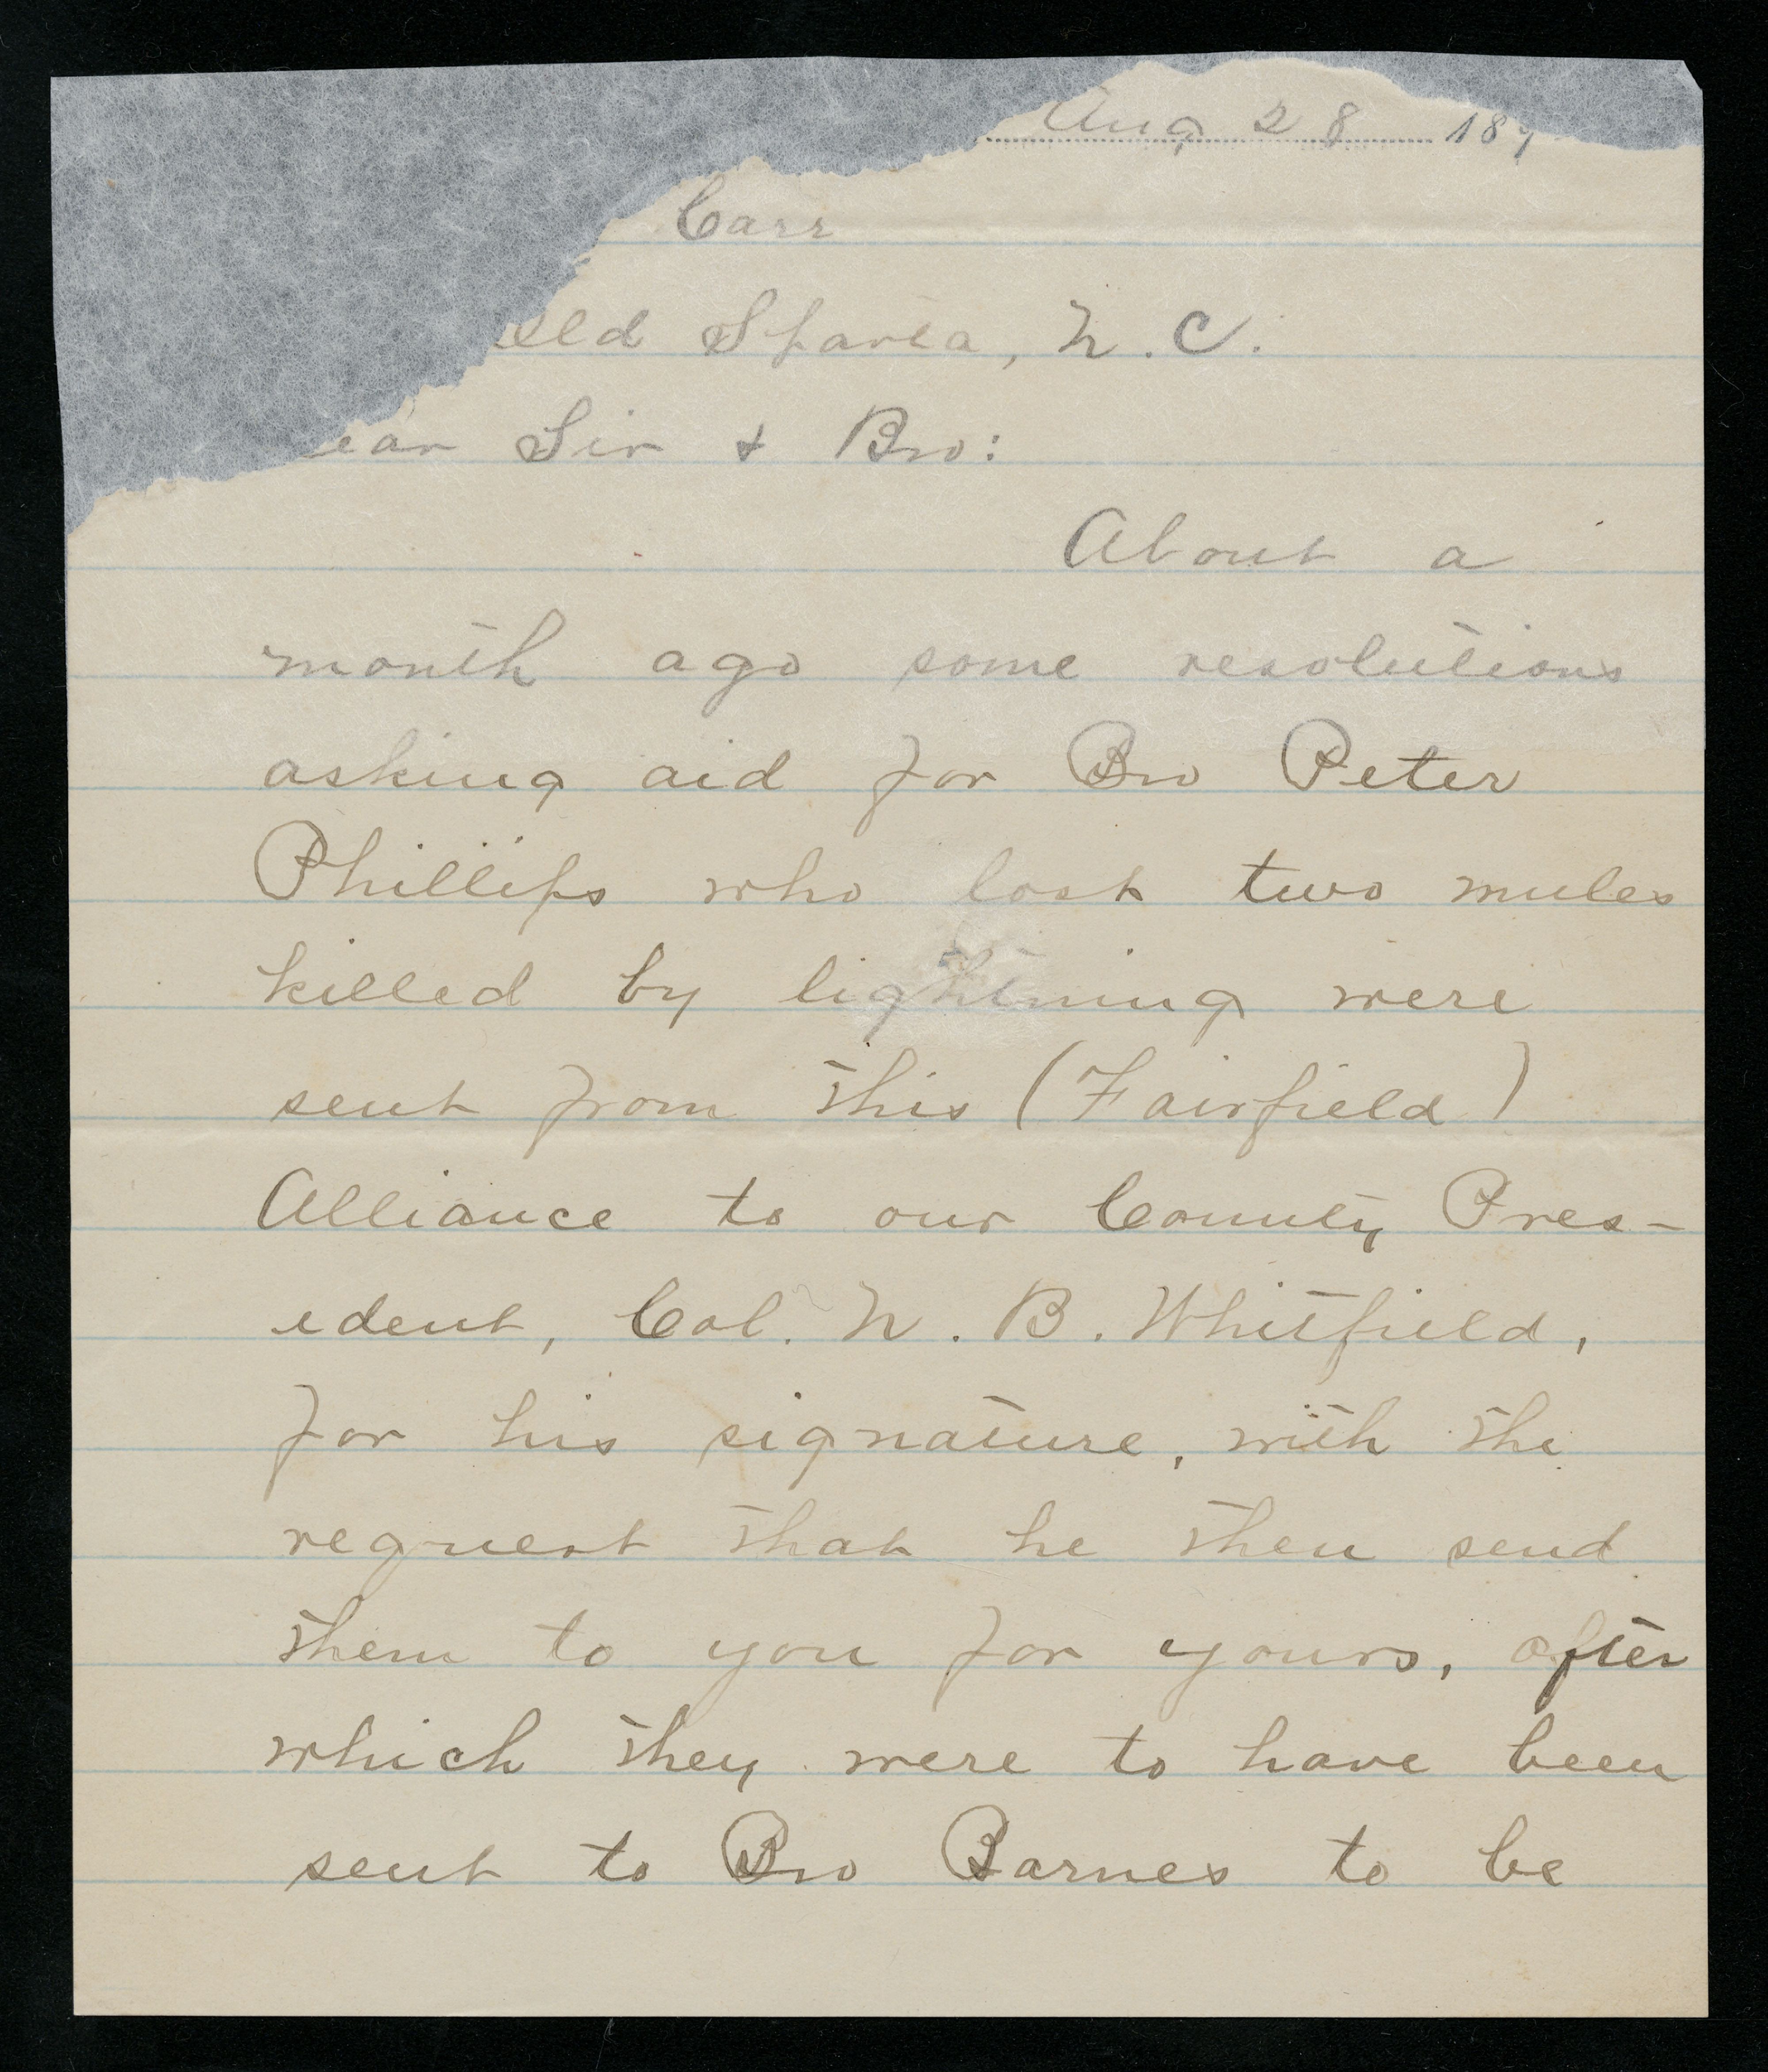 Aug 28 189
Carr
eld Sparta, N.C.
ear Sir & Bro:
About a
month ago some resolutions
asking aid for Bro Peter
Phillips who lost two mules
killed by lightning were
sent from this (Fairfield)
Alliance to our County Pres-
ident, Col. N. B. Whitfield,
for his signature, with the
request that he then send
them to you for yours, after
which they were to have been
sent to Bro Barnes to be